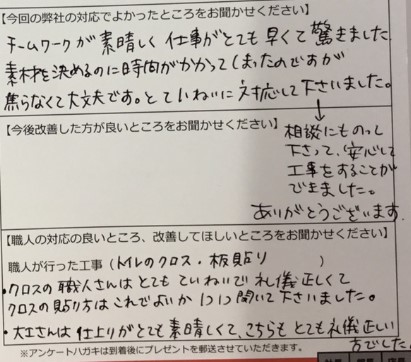 【今回の弊社の対応でよかったところをお聞かせください】
チームワークが素晴しく仕事がとても早くて驚きました
素材を決めるのに時間がかかってしまったのですが
焦らなくて大丈夫です。とていねいに対応して下さいました。
【今後改善した方が良いところをお聞かせください】
相談にものって
下さって、安心して
工事をすることが
できました。
ありがとうございます
【職人の対応の良いところ、改善してほしいところをお聞かせください】
職人が行った工事(トイレのクロス・板貼り )
・クロスの職人さんはとてもていねいで礼儀正しくて
クロスの貼り方はこれでよいか1つ1つ聞いて下さいました。
・大工さんは仕上りがとても素晴しくて、こちらもとても礼儀正しい
方でした。
※アンケートハガキは到着後にプレゼントを郵送させていただきます。